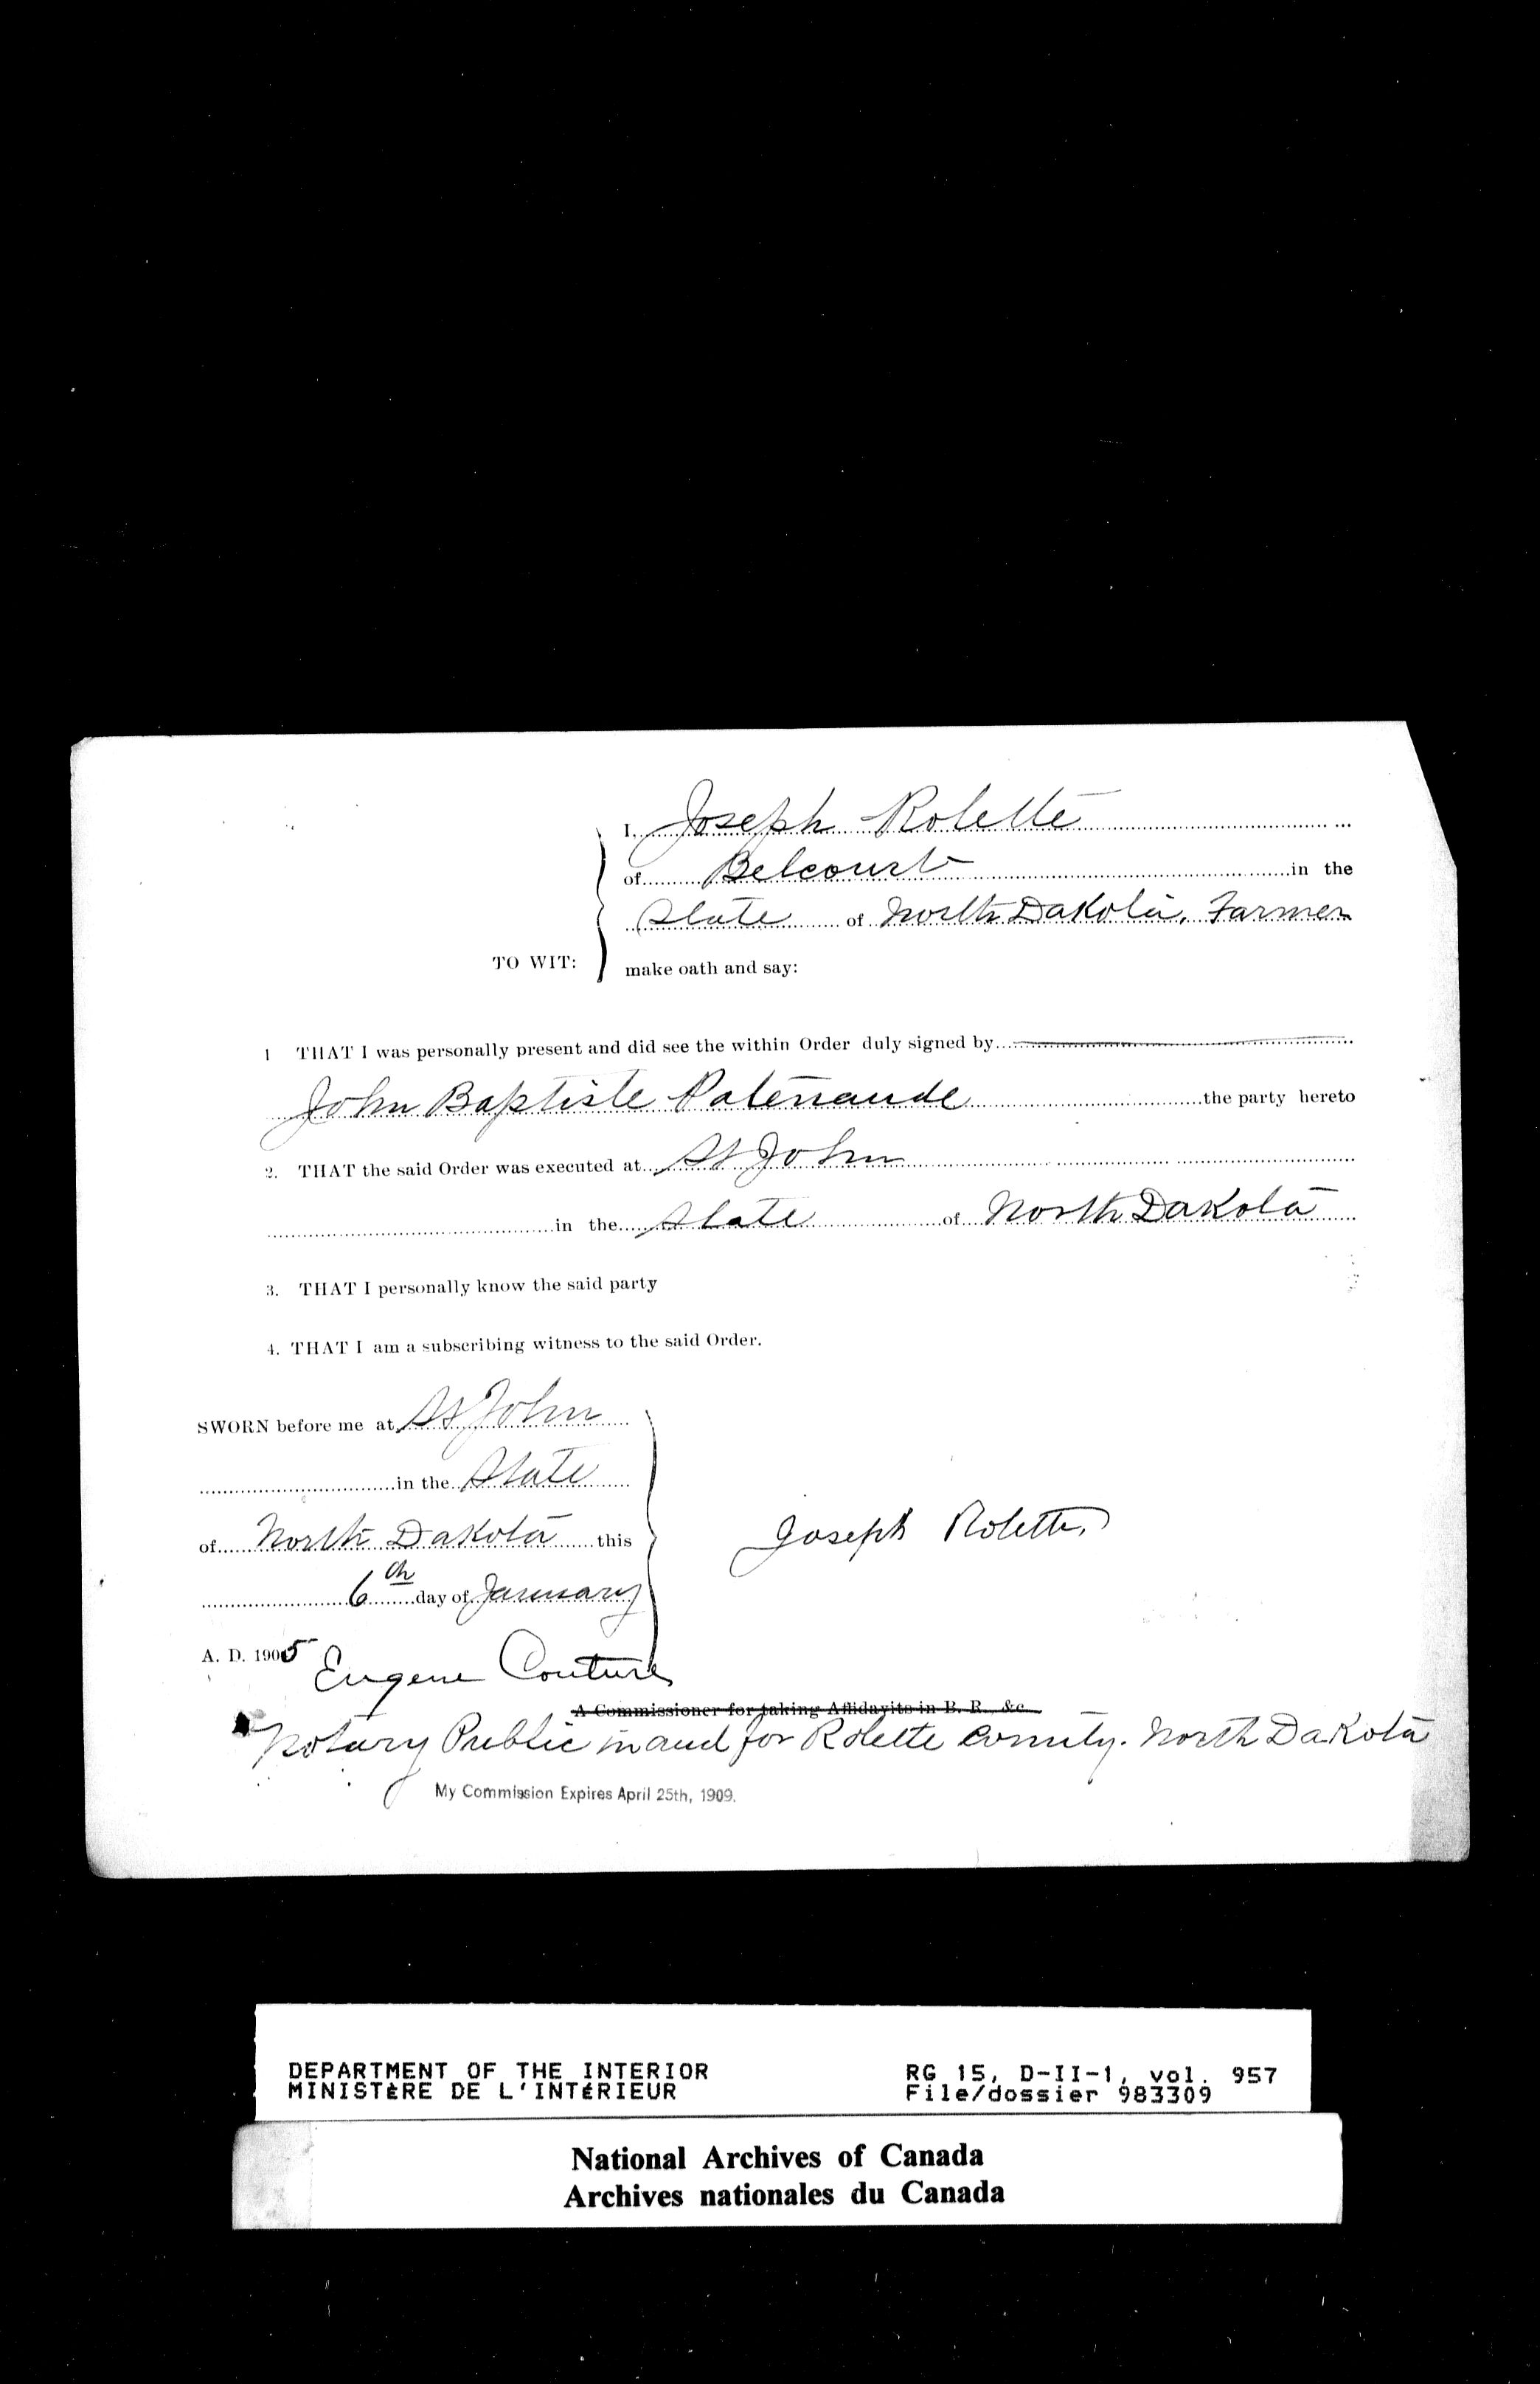 I, Joseph Rolette
of Belcourt in the
State of North Dakota, Farmer
TO WIT: make oath and say:
1 THAT I was personally present and did see the within Order duly signed by
John Baptiste Patenaude the party hereto
2. THAT the said Order was executed at St John
in the State of North Dakota
3. THAT I personally know the said party
4. THAT I am a subscribing witness to the said Order.
SWORN before me at St John
in the State
of North Dakota this
6th day of January
A. D. 1905
Joseph Rolette
Eugene Couture
A Commissioner for taking Affidavits in B. R., &c.
Notary Public in and for Rolette County. North Dakota
My Commission Expires April 25th, 1909.
DEPARTMENT OF THE INTERIOR RG 15, D-II-1, vol. 957
MINISTÈRE DE L'INTÉRIEUR File/dossier 983309
National Archives of Canada
Archives nationales du Canada